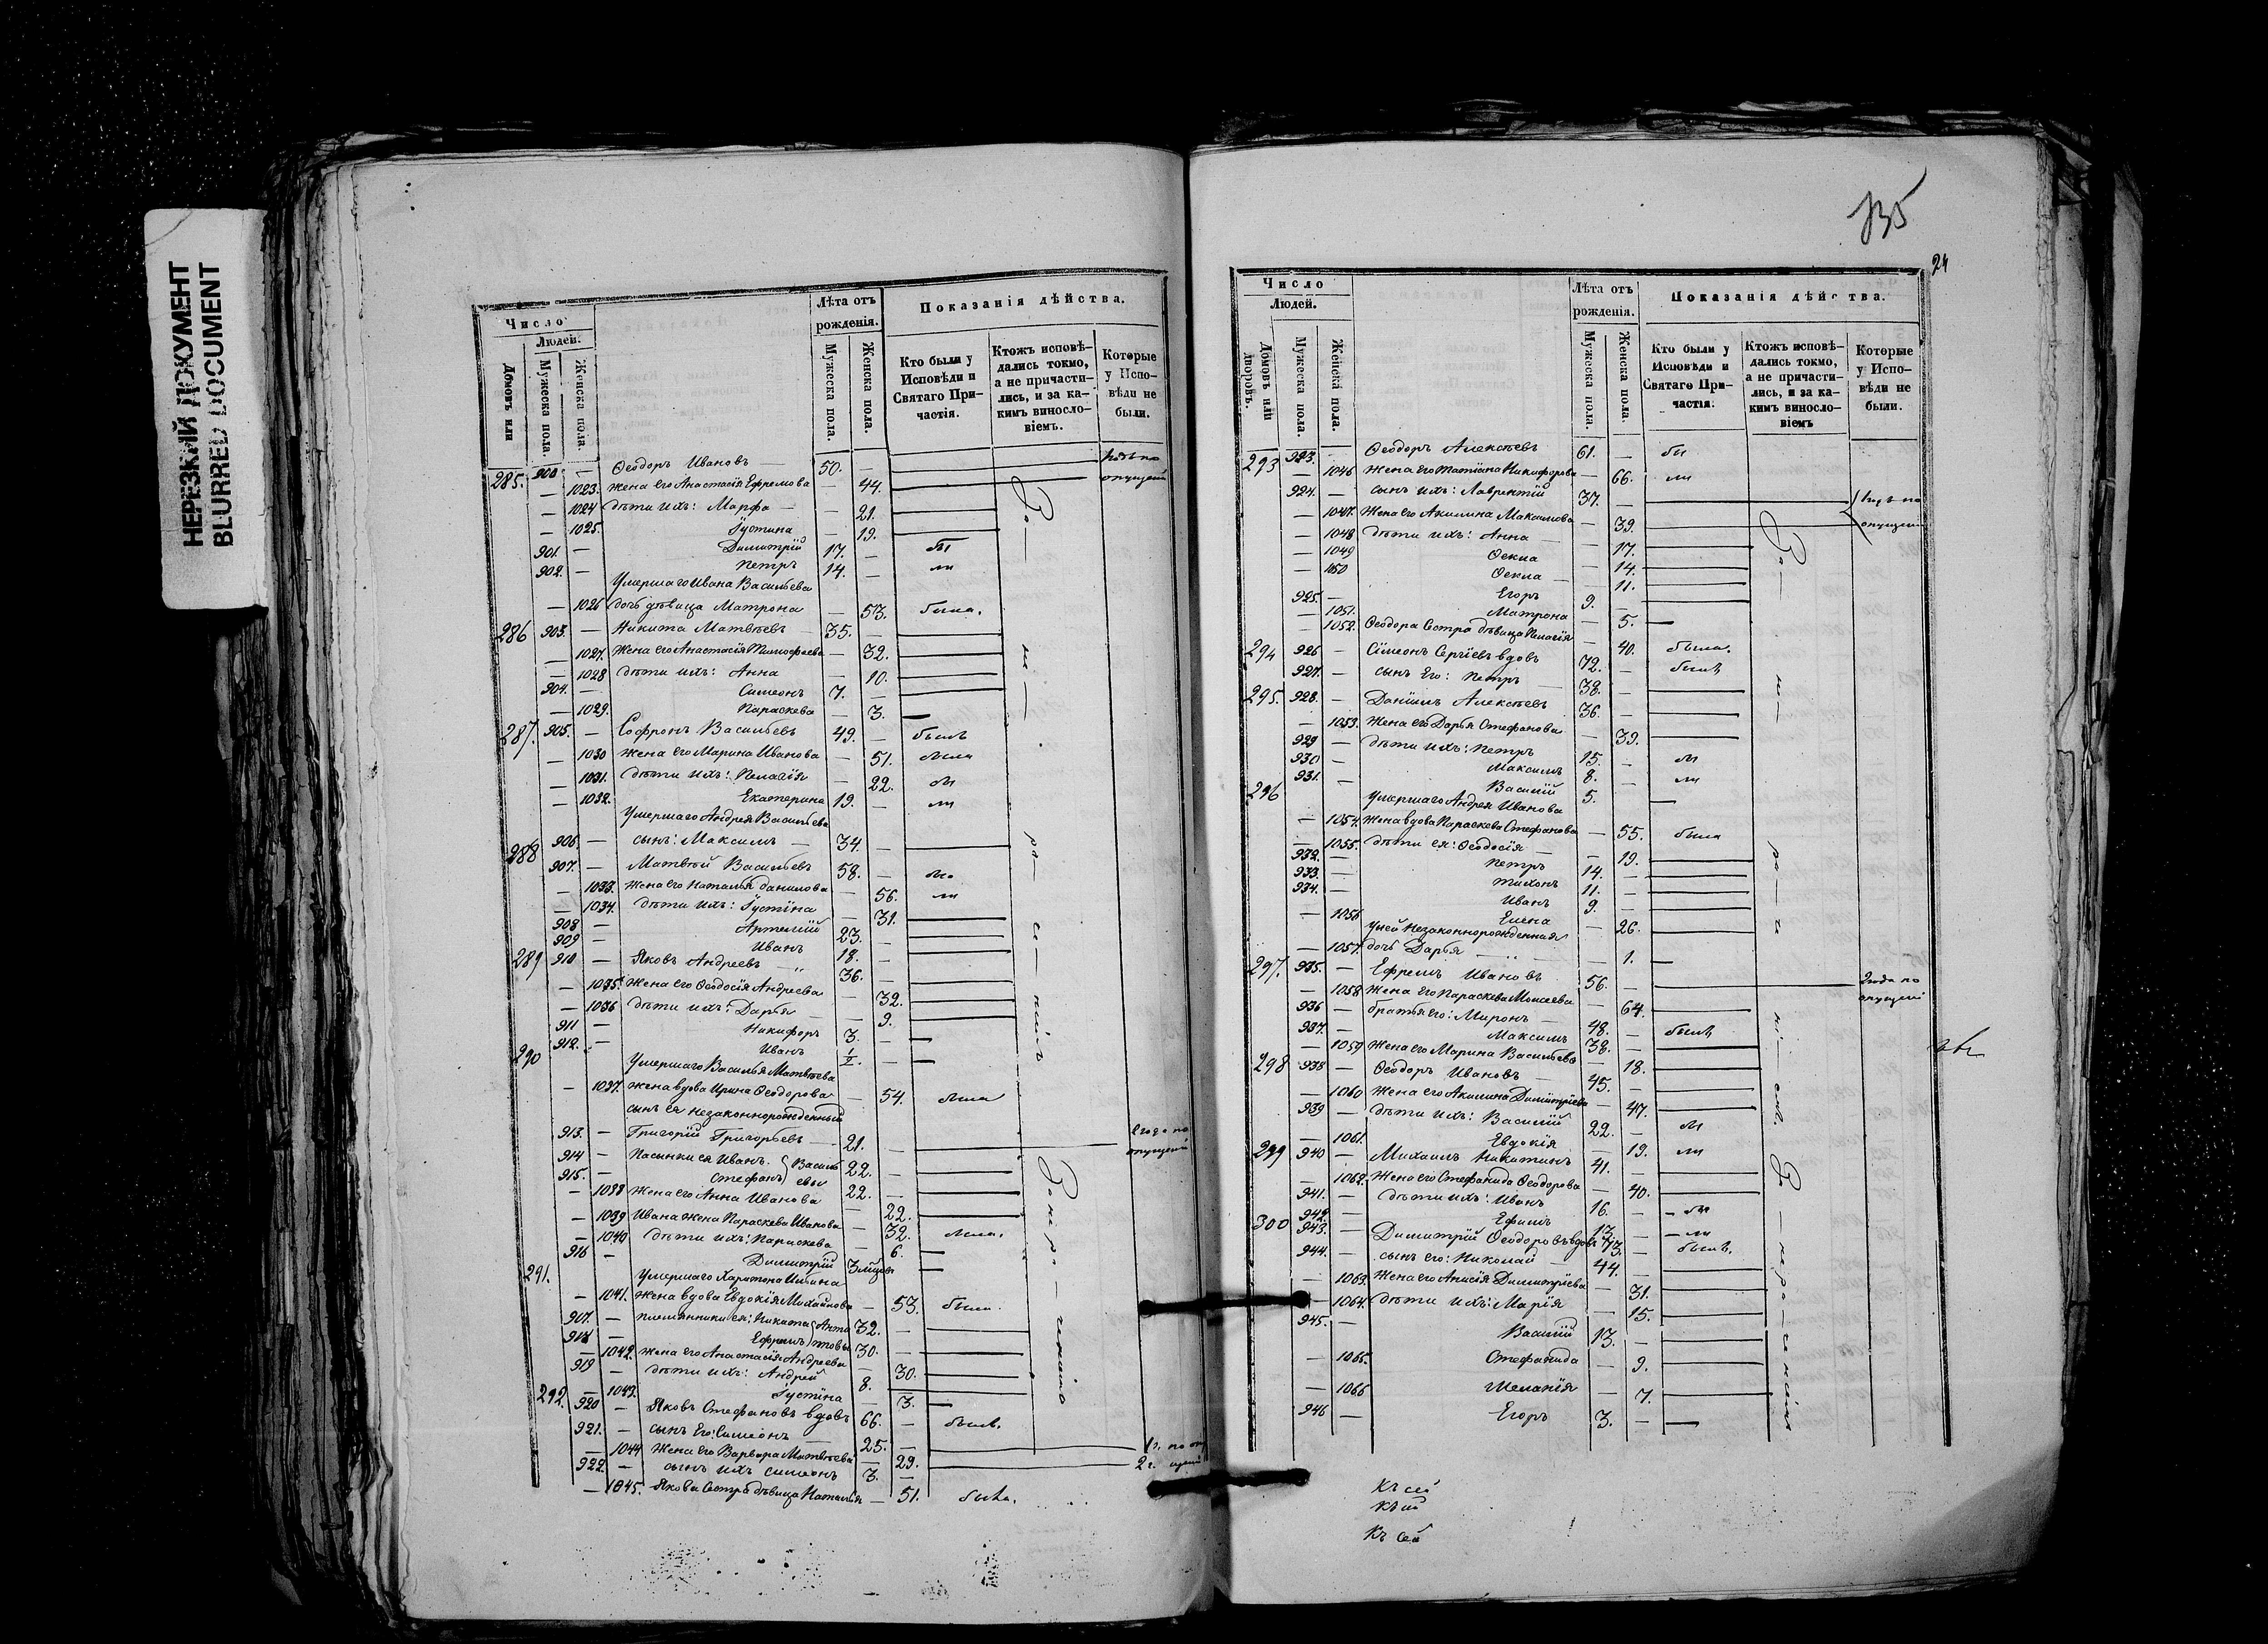 НЕРЕЗКИЙ ДОКУМЕНТ
BLURRED DOCUMENT
Число
Людей.
Домовъ или
Мужеска пола.
Женска пола.
Лѣта отъ
рожденія.
Мужеска пола.
Женска пола.
Показанія дѣйства.
Кто были у
Исповѣди и
Святаго При-
частія.
Ктожъ исповѣ-
дались токмо,
а не причасти-
лись, и за ка-
кимъ винosло-
віемъ.
Которые
у Испо-
вѣди не
были.
285. 900. — Ѳеодоръ Ивановъ — 50. —
— 1023. жена его Анастасія Ефремова — 44. опущенію
— 1024 дѣти ихъ: Марѳа — — 21.
— 1025. Іустина — 19.
901. — Димитрій 17. — бы
902. — Петръ 14. — ли
Умершаго Ивана Васильева
— 1026 дочь дѣвица Матрона — 53. была.
286 903. — Никита Матвѣевъ — 35. —
— 1027. Жена его Анастасія Тимофеева — 32.
— 1028 дѣти ихъ: Анна — 10.
904. — Симеонъ 7. —
— 1029. Параскева — 3.
287. 905. — Софронъ Васильевъ 49. — былъ
— 1030 жена его Марина Иванова — 51. была
— 1031. дѣти ихъ: Пелагія — 22. бы
— 1032. Екатерина 19. — ли
Умершаго Андрея Васильева
288 906. — сынъ: Максимъ — 34. —
907. — Матвѣй Васильевъ 58. — бы
— 1033. жена его Наталья Данилова — 56. ли
— 1034. дѣти ихъ: Іустина — 31.
908 — Артемій 23. —
909 — Иванъ 18. —
289 910 — Яковъ Андреевъ 36. —
— 1035. жена его Ѳеодосія Андреева — 32.
— 1036 дѣти ихъ: Дарья — 9.
911 — Никифоръ 3. —
912. — Иванъ
290 Умершаго Василья Матвѣева
— 1037. жена вдова Ирина Ѳеодорова — 54. была
сынъ ея незаконнорожденный
913. — Григорій Григорьевъ — 21. — опущенію
914 — Пасынки ея Иванъ. Василь 22. —
915. — Стефанъ евы 22. —
— 1038 жена его Анна Иванова — 22.
— 1039 Ивана жена Параскева Иванова — 32. была.
— 1040 дѣти ихъ: Параскева — 6.
916 — Димитрій 3 мѣсяц
291. Умершаго Харитона
— 1041. жена вдова Евдокія Михайлова — 53. была.
917. — племянники ея: Никита Анто 32. —
918 — Ефремъ новы 30. —
— 1042. жена его Анастасія Андреева — 30.
919 — дѣти ихъ: Андрей 8. —
— 1043. Іустина — 3.
292. 920 — Яковъ Стефановъ вдовъ 66. — былъ.
921. — сынъ его: Симеонъ 25. —
— 1044 жена его Варвара Матвѣева — 29.
922. — сынъ ихъ Симеонъ 3. —
— 1045. Якова сестра дѣвица Наталья — 51. была.
За — не — ро — се — ніемъ
135
24
Число
Людей.
Домовъ или
дворовъ.
Мужеска пола.
Женска пола.
Лѣта отъ
рожденія.
Мужеска пола.
Женска пола.
Показанія дѣйства.
Кто были у
Исповѣди и
Святаго При-
частія.
Ктожъ исповѣ-
дались токмо,
а не причасти-
лись, и за ка-
кимъ виносло-
віемъ
Которые
у Испо-
вѣди не
были.
293 923. — Ѳеодоръ Алексѣевъ 61. — бы
— 1046 жена его Татіана Никифорова — 66. ли
924. — сынъ ихъ: Лаврентій 37. —
— 1047. Жена его Акилина Максимова — 39. опущенію
— 1048 дѣти ихъ: Анна — — 17.
— 1049 Ѳекла — 14.
— 1050 Ѳекла — — 11.
925. — Егоръ 9. —
— 1051. Матрона — 5.
— 1052. Ѳеодора сестра дѣвица Пелагія — 40. была.
294 926 — Симеонъ Сергіевъ вдовъ 72. — былъ
927. — сынъ его: Петръ — 38. —
295. 928. — Даніилъ Алексѣевъ 36. —
— 1053. жена его Дарья Стефанова — 39.
929 — дѣти ихъ: Петръ 15. — бы
930 — Максимъ 8. — ли
931. — Василій 5. —
296 Умершаго Андрея Иванова
— 1054. жена вдова Параскева Стефанова — 55. была
— 1055. дѣти ея: Ѳеодосія — — 19.
932. — Петръ 14. —
933. — Тихонъ 11. —
934. — Иванъ 9. —
— 1056 Елена — 26.
у ней незаконнорожденная
— 1057 дочь Дарья — — 1.
297. 935. — Ефремъ Ивановъ 56. — 2 года по
— 1058 жена его Параскева Моисеева — 64. опущенію
936 — братья его: Миронъ — 48. — былъ
937. — Максимъ 38. —
— 1059 жена его Марина Васильева — 18.
298 938 — Ѳеодоръ Ивановъ — 45. —
— 1060 жена его Акилина Димитріева — 47.
939 — дѣти ихъ: Василій 22. — бы
— 1061. Евдокія — 19. ли
299 940 — Михаилъ Никитинъ 41. —
— 1062. Жена его Стефанида Ѳеодорова — 40.
941. — дѣти ихъ: Иванъ 16. — бы
942. — Ефимъ 13. — ли
300 943. — Димитрій Ѳеодоровъ вдовъ 73. — былъ.
944. — сынъ его: Николай — 44. —
— 1063. Жена его Анисія Димитріева — 31.
— 1064. дѣти ихъ: Марія — 15.
945. — Василій 13. —
— 1065. Стефанида — 9.
— 1066 Меланія — 7.
946 — Егоръ 3. —
Къ сей
Къ сей